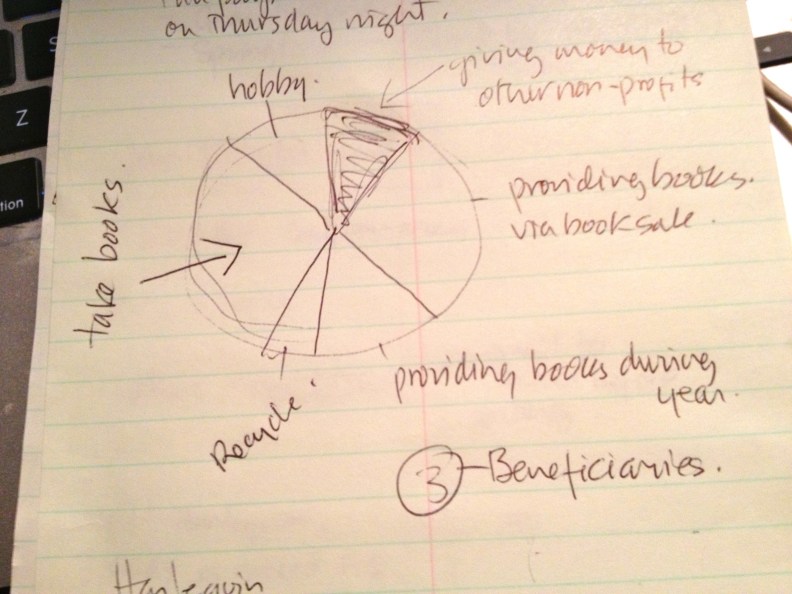 on Thursday night.
hobby.
giving money to
other non-profits
providing books.
via book sale.
take books.
providing books during
year.
Recycle.
3 - Beneficiaries.
Harlequin
Z